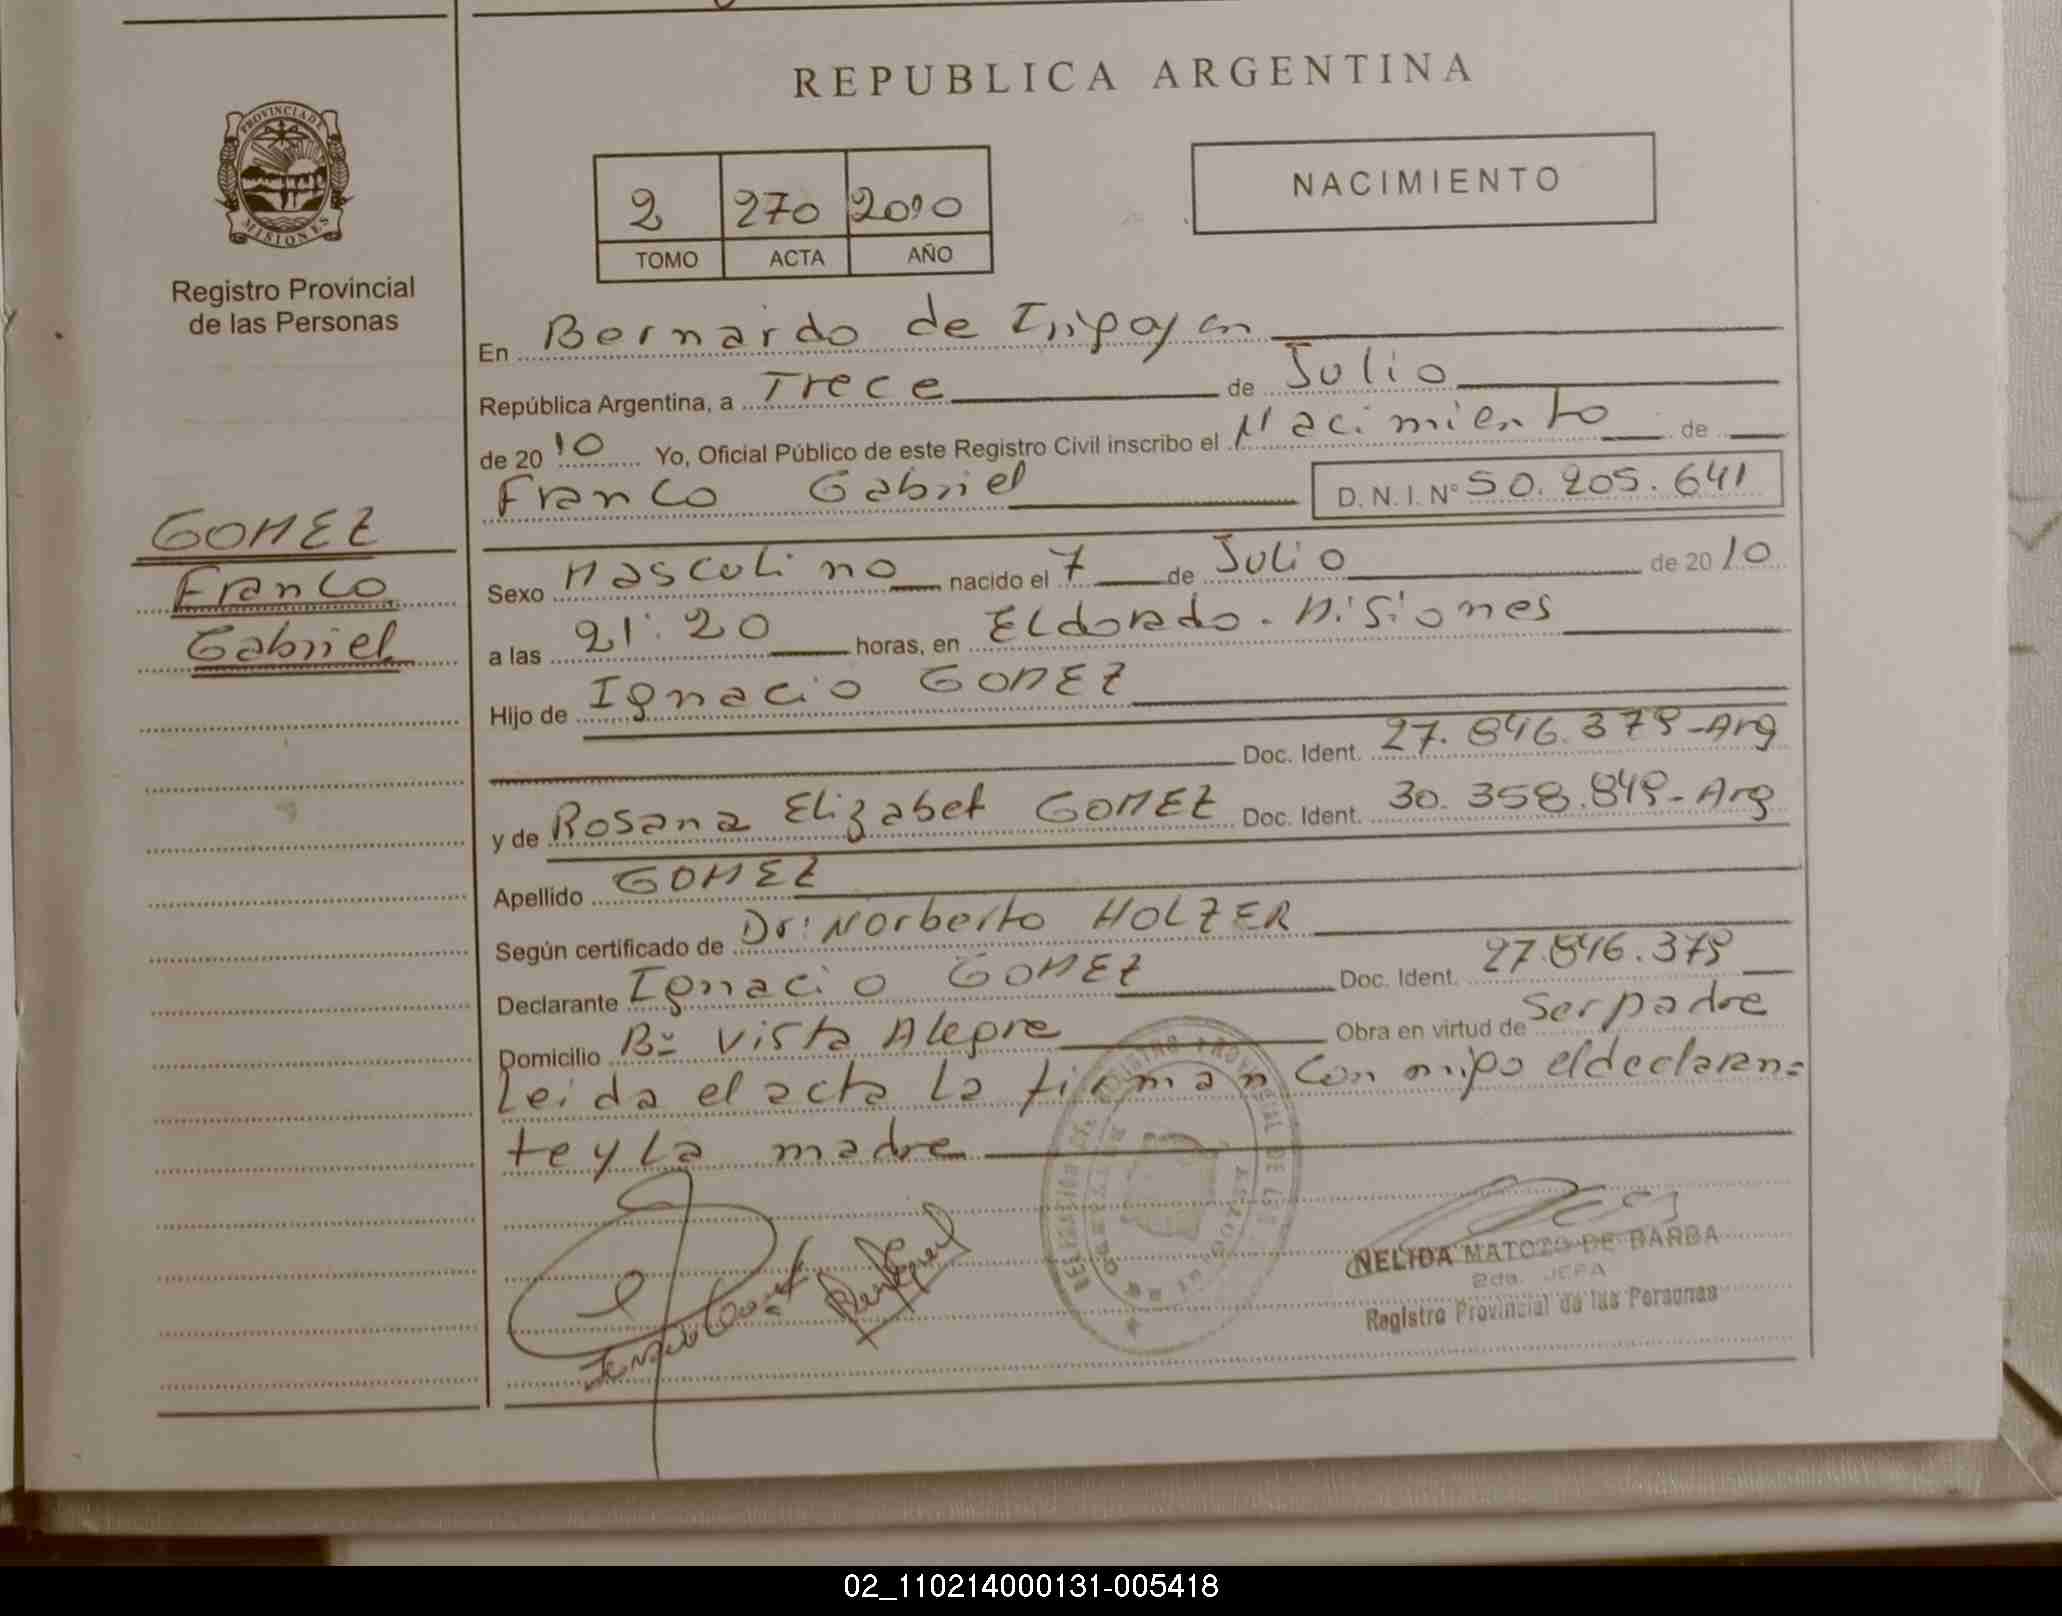 REPUBLICA ARGENTINA
PROVINCIA DE
MISIONES
Registro Provincial
de las Personas
2 270 2010
TOMO ACTA AÑO
NACIMIENTO
En Bernardo de Irigoyen
República Argentina, a Trece de Julio
de 2010 Yo, Oficial Público de este Registro Civil inscribo el Nacimiento de
Franco Gabriel D. N. I. N° 50.205.641
GOMEZ
Franco
Gabriel
Sexo Masculino nacido el 7 de Julio de 2010
a las 21:20 horas, en Eldorado. Misiones
Hijo de Ignacio GOMEZ
Doc. Ident. 27.846.379-Arg
y de Rosana Elizabet GOMEZ Doc. Ident. 30.358.849-Arg
Apellido GOMEZ
Según certificado de Dr: Norberto HOLZER
Declarante Ignacio GOMEZ Doc. Ident. 27.846.379
Domicilio Bº Vista Alegre Obra en virtud de Ser padre
Leida el acta la firman con migo el declaran=
te y la madre
NELIDA MATOTO DE BARBA
2da. JEFA
Registro Provincial de las Personas
02_110214000131-005418